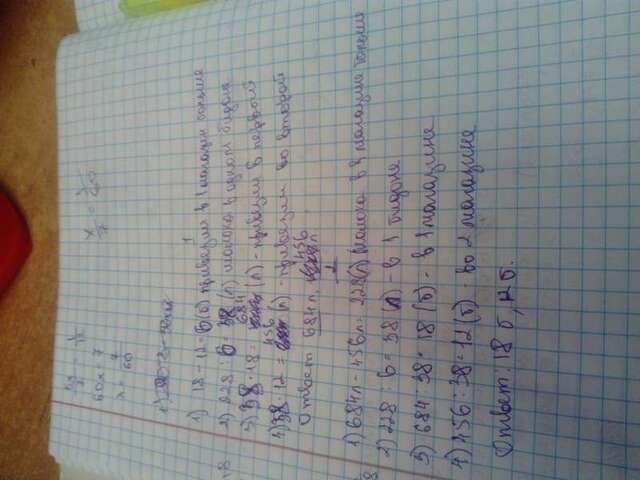 60x = 7
x = 7/60
1) 18 - 12 = 6(б) привезли в 1 магазин больше
2) 228 : 6 = 38 (л) молока в одном бидоне
3) 38 · 18 = 684 (л) - привезли в первой
4) 38 · 12 = 456 (л) - привезли во второй
Ответ 684 л, 456 л
1) 684л - 456л = 228(л) молока в 1 магазине больше
2) 228 : 6 = 38 (л) - в 1 бидоне
3) 684 : 38 = 18 (б) - в 1 магазине
4) 456 : 38 = 12 (б) - во 2 магазине
Ответ: 18 б, 12 б.